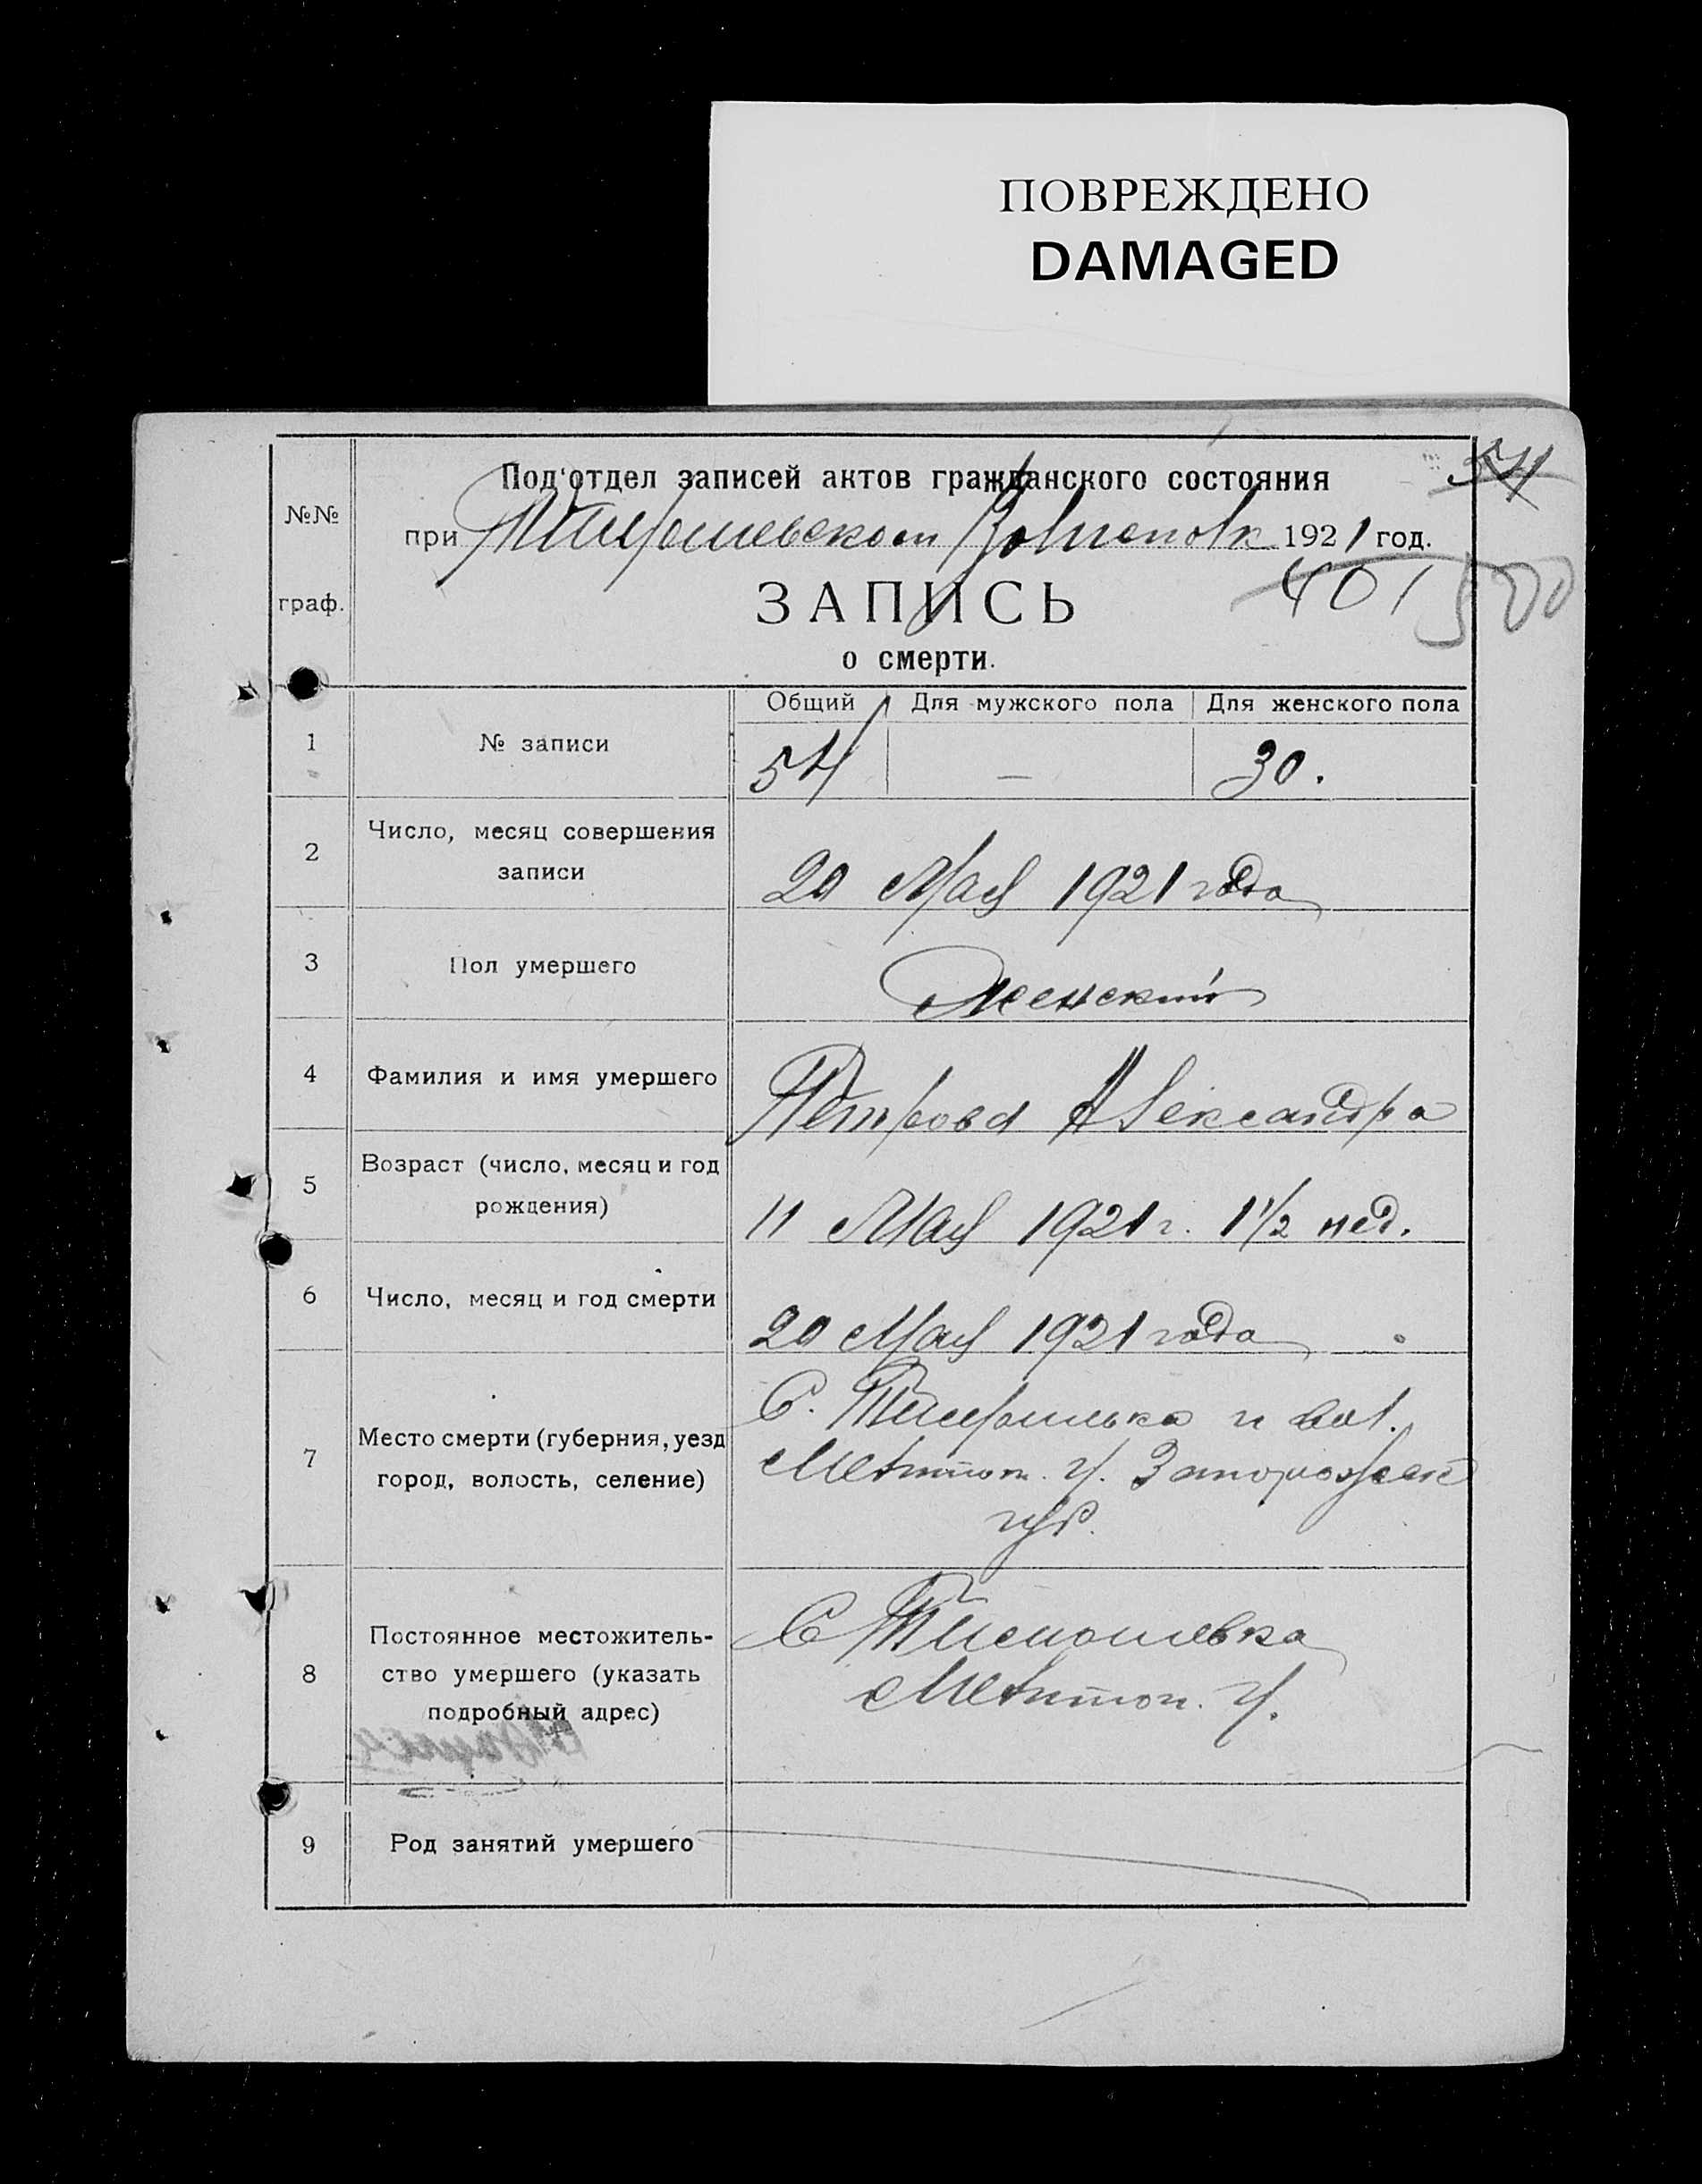 ПОВРЕЖДЕНО
DAMAGED
54
№№ граф.
Под'отдел записей актов гражданского состояния
при Тимошевском Волисполк 1921 год.
401 500
ЗАПИСЬ
о смерти.
Общий Для мужского пола Для женского пола
1 № записи 54 — 30.
2 Число, месяц совершения
записи 20 Мая 1921 года
3 Пол умершего Женский
4 Фамилия и имя умершего Петрова Александра
5 Возраст (число, месяц и год
рождения) 11 Мая 1921 г. 1 1/2 нед.
6 Число, месяц и год смерти 20 Мая 1921 года
7 Место смерти (губерния, уезд
город, волость, селение)
С. Тимошевка и вол.
Мелитоп. у. Запорожск
губ.
8 Постоянное местожитель-
ство умершего (указать
подробный адрес)
С Тимошевка
Мелитоп. у.
9 Род занятий умершего